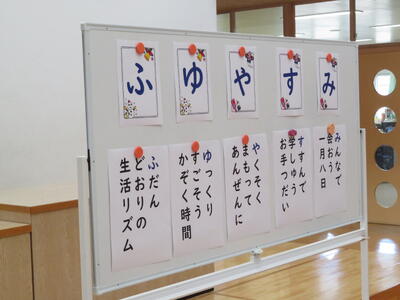 ふ
ゆ
や
す
み
ふだん
どおりの
生活リズム
ゆっくり
すごそう
かぞく時間
やくそく
まもって
あんぜんに
すすんで
学しゅう
お手つだい
みんなで
会おう
一月八日